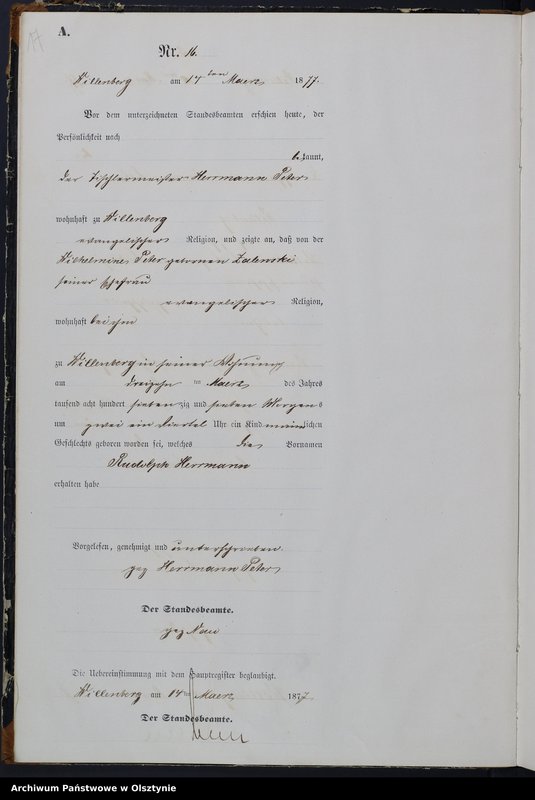 A.
Nr. 16.
Willenberg am 14 ten Maerz 1877.
Vor dem unterzeichneten Standesbeamten erschien heute, der
Persönlichkeit nach
bekannt,
der Tischlermeister Herrmann Peter
wohnhaft zu Willenberg
evangelischer Religion, und zeigte an, daß von der
Wilhelmine Peter geborenen Zalenski
seiner Ehefrau
evangelischer Religion,
wohnhaft bei ihm
zu Willenberg in seiner Wohnung
am dreizehn ten Maerz des Jahres
tausend acht hundert siebenzig und sieben Morgens
um zwei ein viertel Uhr ein Kind männlichen
Geschlechts geboren worden sei, welches die Vornamen
Rudolph Herrmann
erhalten habe
Vorgelesen, genehmigt und unterschrieben.
gez Herrmann Peter
Der Standesbeamte.
gez
Die Uebereinstimmung mit dem Hauptregister beglaubigt.
Willenberg am 14 ten Maerz 1877
Der Standesbeamte.
Archiwum Państwowe w Olsztynie